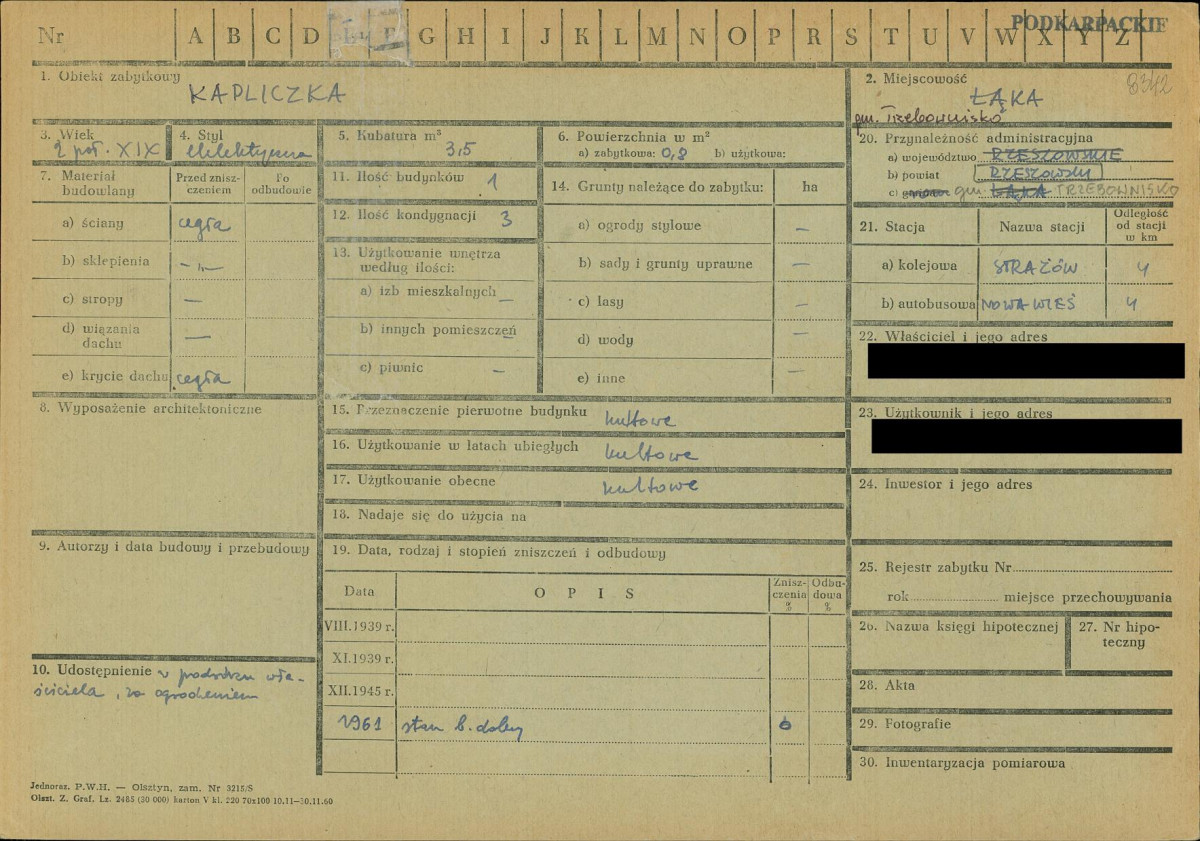 Nr A B C D E F G H I J K L M N O P R S T U V W X Y Z
PODKARPACKIE
1. Obiekt zabytkowy
KAPLICZKA
2. Miejscowość
8342
ŁĄKA
gm. Trzebownisko
3. Wiek
2 poł. XIX
4. Styl
eklektyczna
5. Kubatura m³
3,5
6. Powierzchnia w m²
a) zabytkowa: 0,8 b) użytkowa:
20. Przynależność administracyjna
a) województwo RZESZOWSKIE
b) powiat RZESZOWSKI
c) gm. ŁĄKA TRZEBOWNISKO
7. Materiał budowlany
Przed znisz-
czeniem
Po
odbudowie
a) ściany cegła
b) sklepienia -"-
c) stropy —
d) wiązania
dachu —
e) krycie dachu cegła
11. Ilość budynków 1
12. Ilość kondygnacji 3
13. Użytkowanie wnętrza
według ilości:
a) izb mieszkalnych —
b) innych pomieszczeń —
c) piwnic —
14. Grunty należące do zabytku: ha
a) ogrody stylowe —
b) sady i grunty uprawne —
c) lasy —
d) wody —
e) inne —
21. Stacja Nazwa stacji
Odległość
od stacji
w km
a) kolejowa STRAŻÓW 4
b) autobusowa NOWA WIEŚ 4
22. Właściciel i jego adres
23. Użytkownik i jego adres
8. Wyposażenie architektoniczne
15. Przeznaczenie pierwotne budynku kultowe
16. Użytkowanie w latach ubiegłych kultowe
17. Użytkowanie obecne kultowe
18. Nadaje się do użycia na
24. Inwestor i jego adres
9. Autorzy i data budowy i przebudowy
19. Data, rodzaj i stopień zniszczeń i odbudowy
Data OPIS
Znisz-
czenia
%
Odbu-
dowa
%
VIII.1939 r.
XI.1939 r.
XII.1945 r.
1961 stan b. dobry 0
25. Rejestr zabytku Nr
rok miejsce przechowywania
26. Nazwa księgi hipotecznej
27. Nr hipo-
teczny
10. Udostępnienie w podwórzu wła-
ściciela, za ogrodzeniem
28. Akta
29. Fotografie
30. Inwentaryzacja pomiarowa
Jednoraz. P.W.H. — Olsztyn, zam. Nr 3215/S
Olszt. Z. Graf. Lz. 2485 (30 000) karton V kl. 220 70x100 10.11—30.11.60